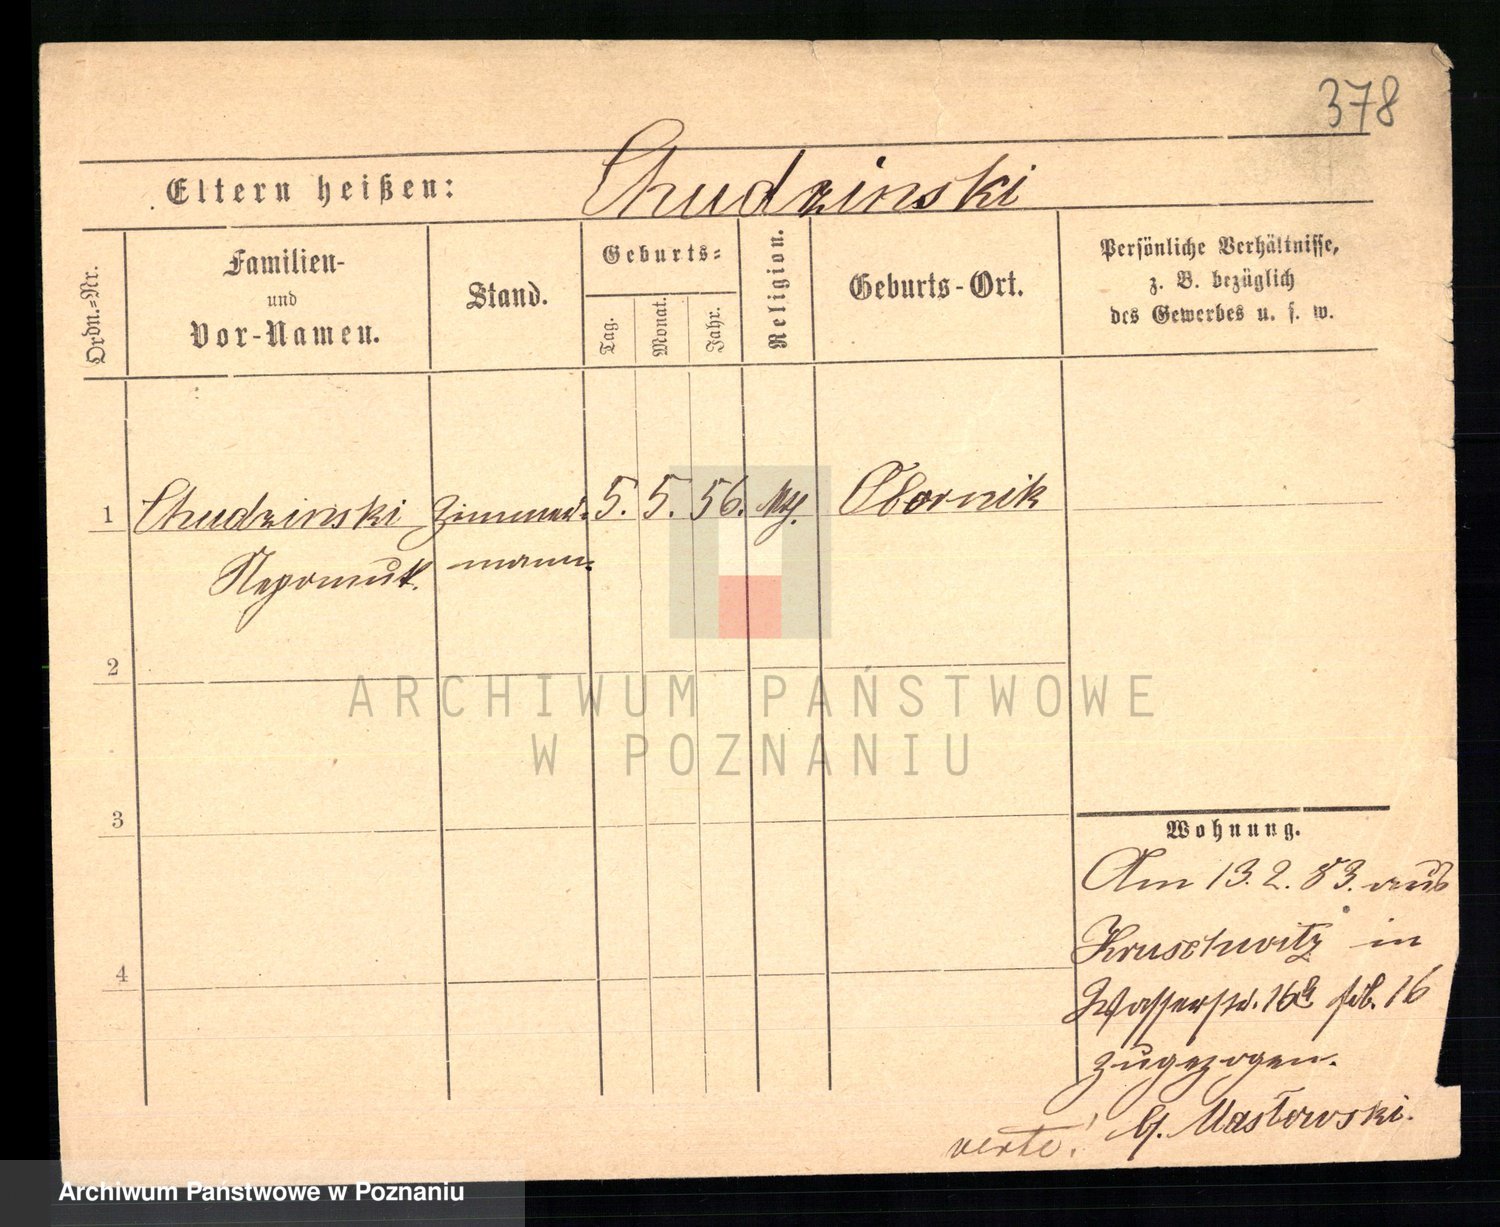 378
Eltern heißen: Chudzinski
Ordn.=Nr.
Familien-
und
Vor-Namen.
Stand.
Geburts=
Tag.
Monat.
Jahr.
Religion.
Geburts-Ort.
Persönliche Verhältnisse,
z. B. bezüglich
des Gewerbes u. s. w.
1 Chudzinski Zimmer= 5. 5. 56. Obornik
Nepomuk. mann.
2
3
4
Wohnung.
Am 13. 2. 83. aus
Kruschwitz in
Wasserstr. 16 16
zugezogen.
b. Masłowski.
verte!
ARCHIWUM PAŃSTWOWE
W POZNANIU
Archiwum Państwowe w Poznaniu